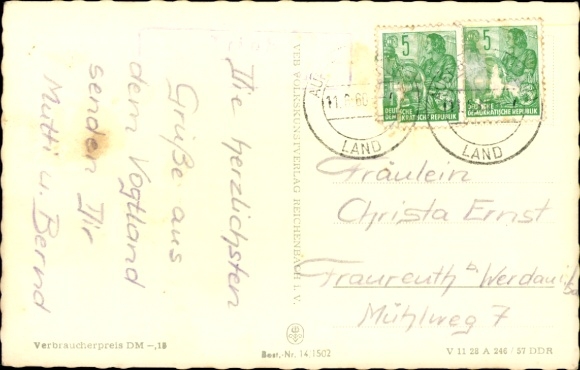 Die herzlichsten
Grüße aus
dem Vogtland
senden Dir
Mutti u. Bernd
Verbraucherpreis DM -,15
VEB VOLKSKUNSTVERLAG REICHENBACH I. V.
Best.-Nr. 14.1502
5
DEUTSCHE
DEMOKRATISCHE REPUBLIK
5
DEUTSCHE
DEMOKRATISCHE REPUBLIK
LAND
LAND
Fräulein
Christa Ernst
Fraureuth b Werdau
Mühlweg 7
V 11 28 A 246 / 57 DDR